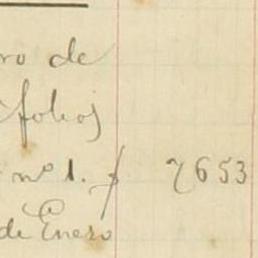 ro de
folios
nº 1. f 7653
de Enero